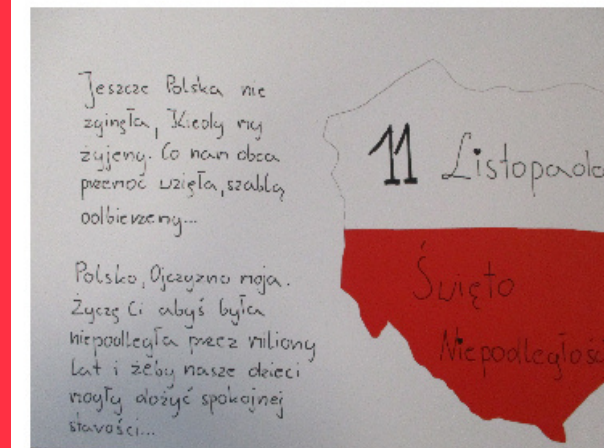 Jeszcze Polska nie
zginęła, Kiedy my
żyjemy. Co nam obca
przemoc wzięła, szablą
odbierzemy...
Polsko, Ojczyzno moja.
Życzę Ci abyś była
niepodległa przez miliony
lat i żeby nasze dzieci
mogły dożyć spokojnej
starości...
11 Listopada
Święto
Niepodległości